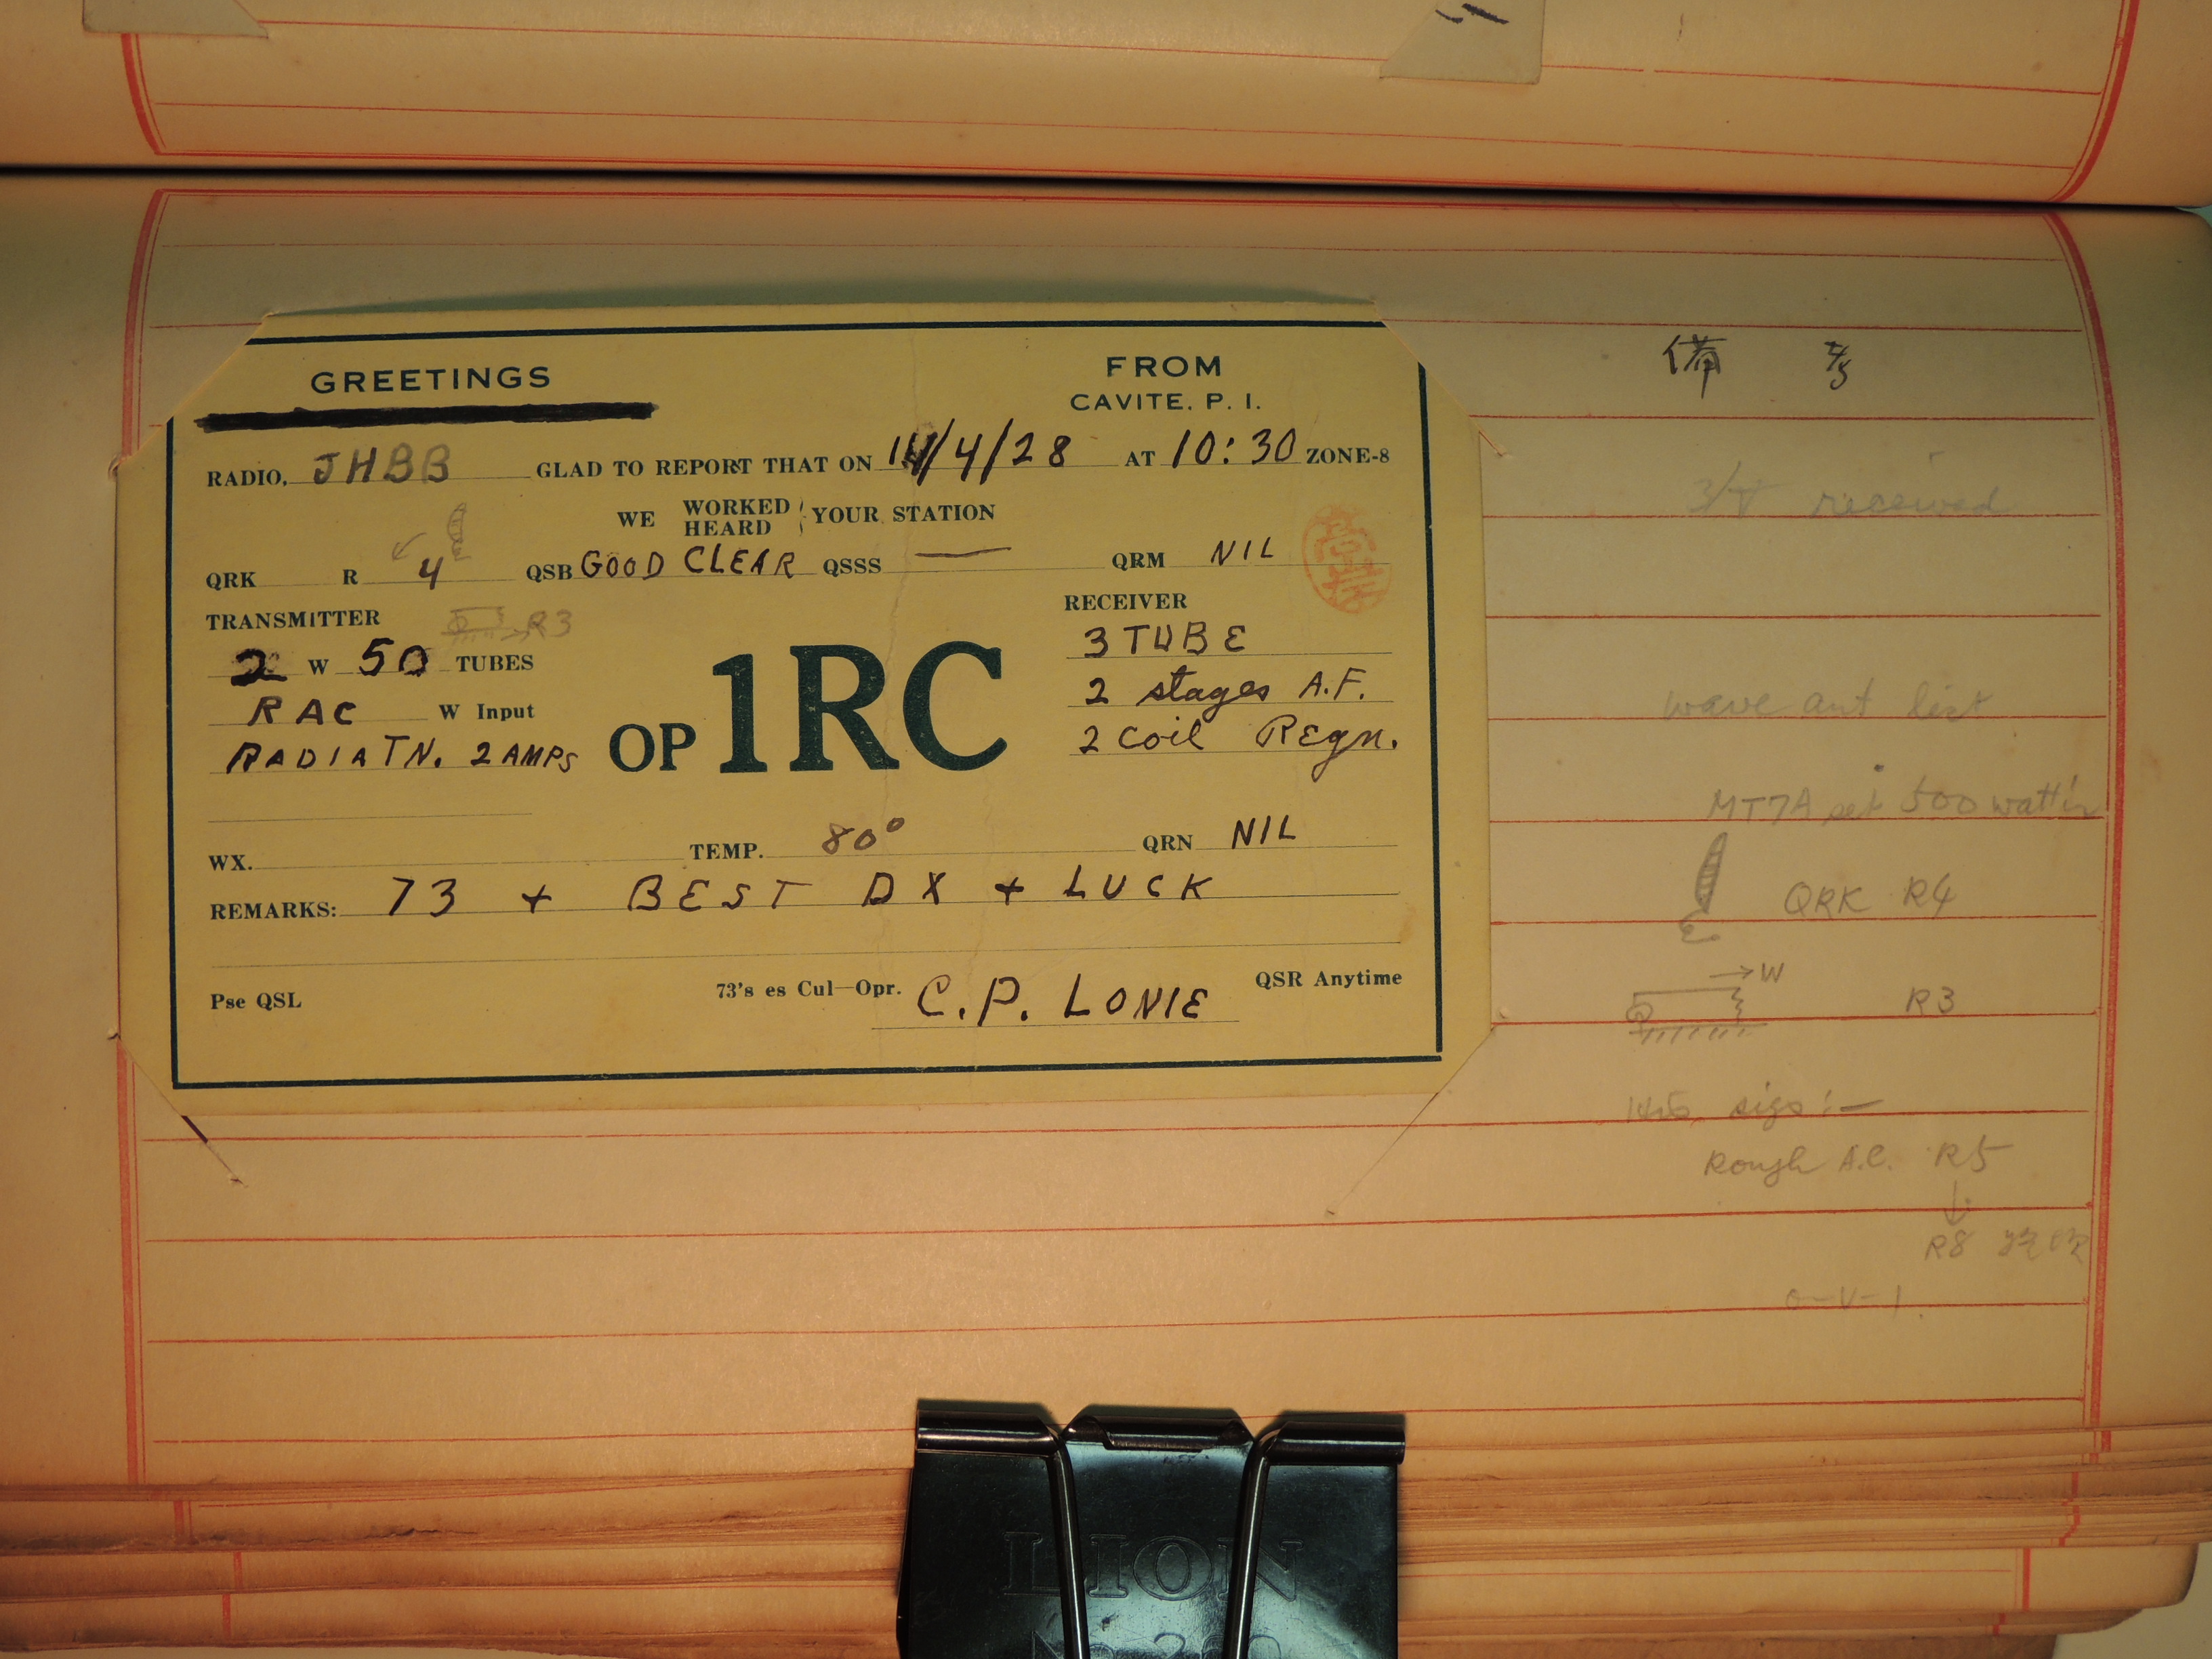 GREETINGS
FROM
CAVITE. P. I.
RADIO, JHBB GLAD TO REPORT THAT ON 14/4/28 AT 10:30 ZONE-8
WE WORKED HEARD YOUR STATION
QRK R 4 QSB GOOD CLEAR QSSS — QRM NIL
TRANSMITTER R3
2 W 50 TUBES
RAC W Input
RADIATN. 2 AMPS
OP 1RC
RECEIVER
3 TUBE
2 stages A.F.
2 coil Regn.
WX. TEMP. 80° QRN NIL
REMARKS: 73 + BEST DX + LUCK
Pse QSL 73's es Cul—Opr. C.P. LONIE QSR Anytime
備考
3/V received
wave ant list
MT7A set 500 watt
QRK R4
→ W
R3
sigs :—
Rough A.C. R5
↓
R8
0-V-1
LION